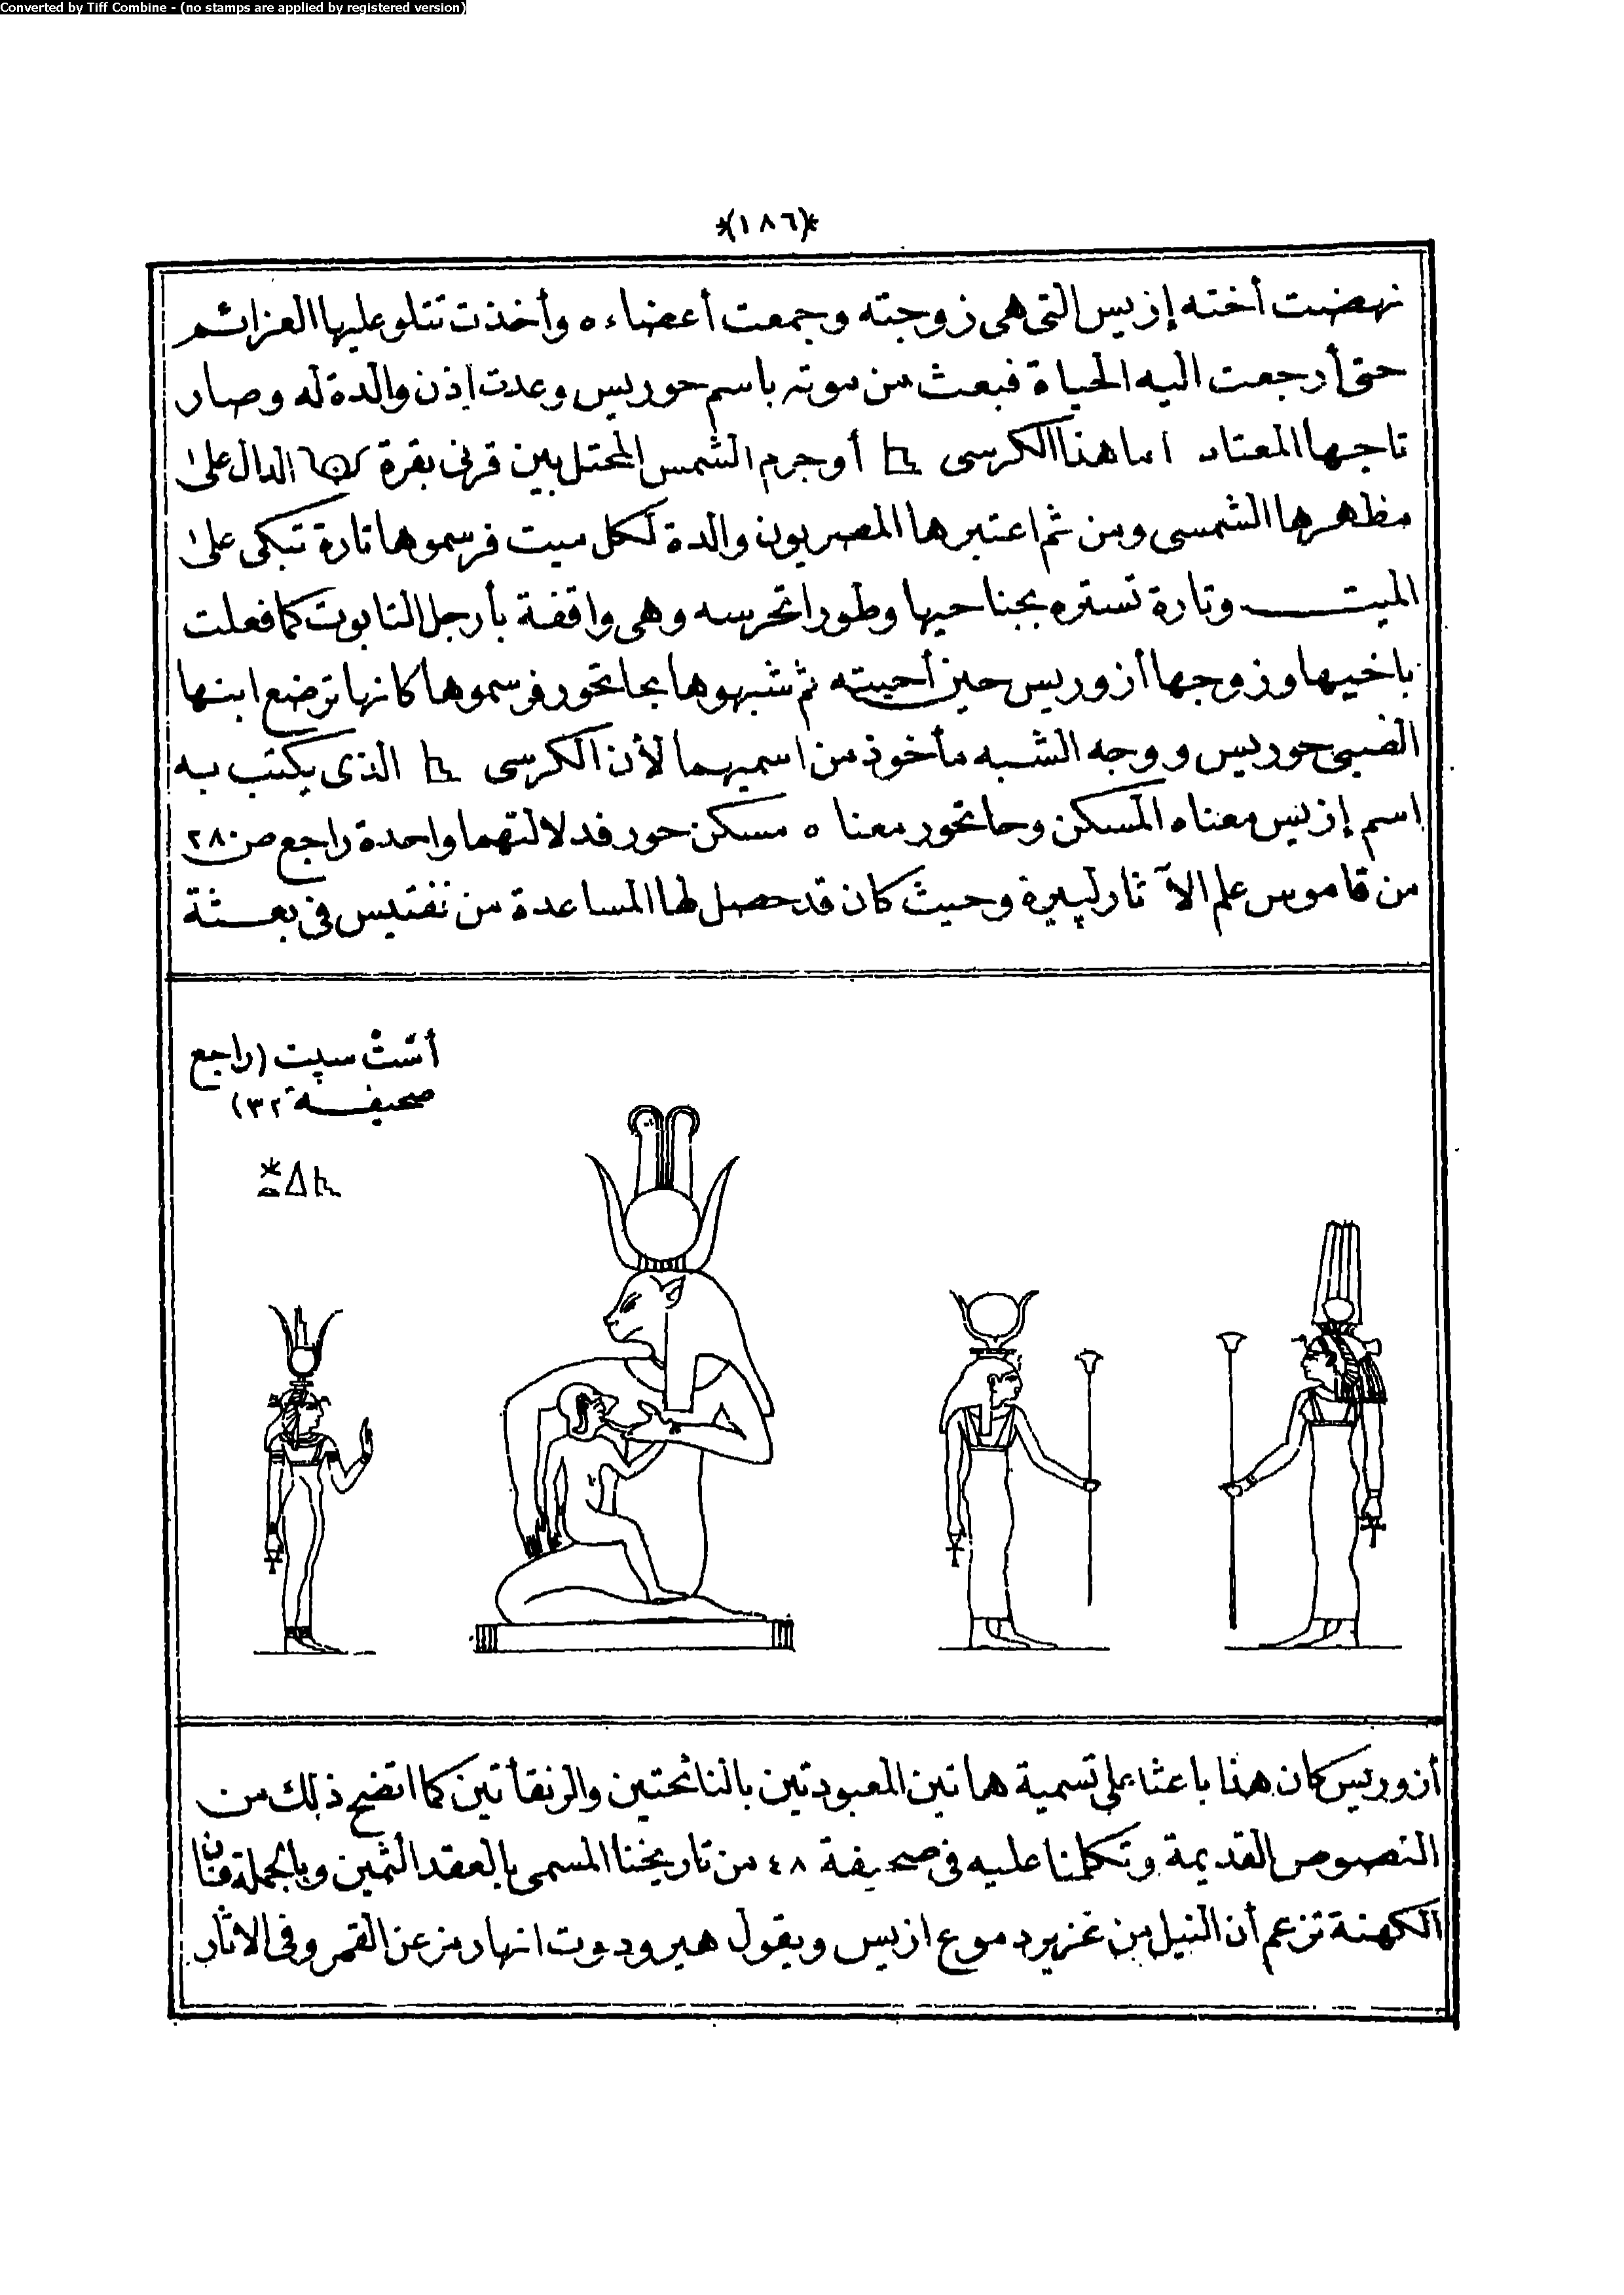 Converted by Tiff Combine - (no stamps are applied by registered version)
*(١٨٦)*
نهضت أخته إزيس التى هى زوجته وجمعت أعضاءه وأخذت تتلو عليها العزائم
حتى أرجعت اليه الحياة فبعث من موته باسم حوريس وعدت إذن والدة له وصار
تاجها المعتاد اما هذا الكرسى أو جرم الشمس المحتل بين قرنى بقرة الدال على
مظهرها الشمسى ومن ثم اعتبرها المصريون والدة لكل ميت فرسموها تارة تبكى على
الميت وتارة تستره بجناحيها وطورا تحرسه وهى واقفة بأرجل التابوت كما فعلت
باخيها وزوجها أزوريس حين أحيته ثم شبهوها بحاتحور فرسموها كانها ترضع ابنها
الصبى حوريس ووجه الشبه مأخوذ من اسميهما لأن الكرسى الذى يكتب به
اسم إزيس معناه المسكن وحاتحور معناه مسكن حور فدلالتهما واحدة راجع ص ٢٨٠
من قاموس علم الآثار لپيره وحيث كان قد حصل لها المساعدة من نفتيس فى بعثة
أسّتْ سپت (راجع
صحيفة ٣٢)
أزوريس كان هذا باعثا على تسمية هاتين المعبودتين بالنائحتين والزنقأتين كما اتضح ذلك من
النصوص القديمة وتكلمنا عليه فى صحيفة ٤٨ من تاريخنا المسمى بالعقد الثمين وبالجملة فان
الكهنة تزعم أن النيل من غزير دموع ازيس ويقول هيرودوت انها رمز عن القمر وفى الاثار